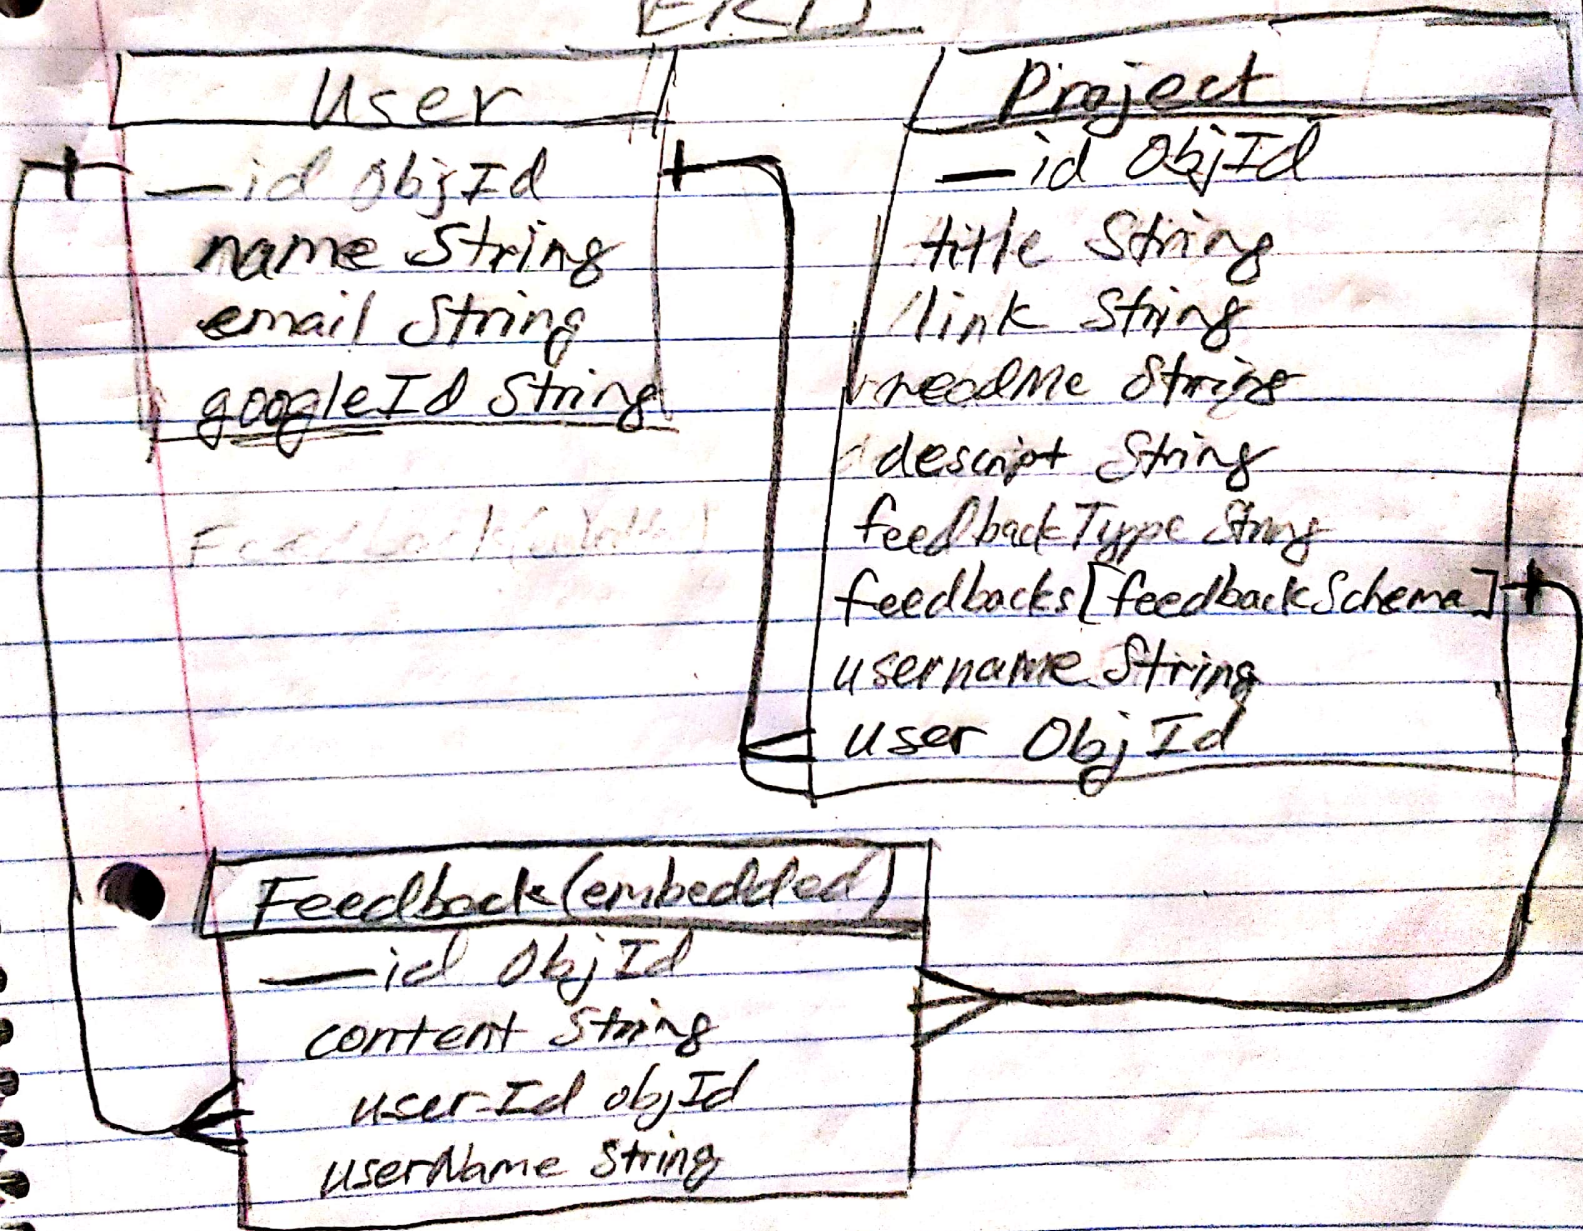 ERD
User
_id ObjId
name String
email String
googleId String
Project
_id ObjId
title String
link String
readMe String
descript String
feedbackType String
feedbacks[feedbackSchema]
username String
user ObjId
Feedback(embedded)
_id ObjId
content String
user-Id objId
userName String